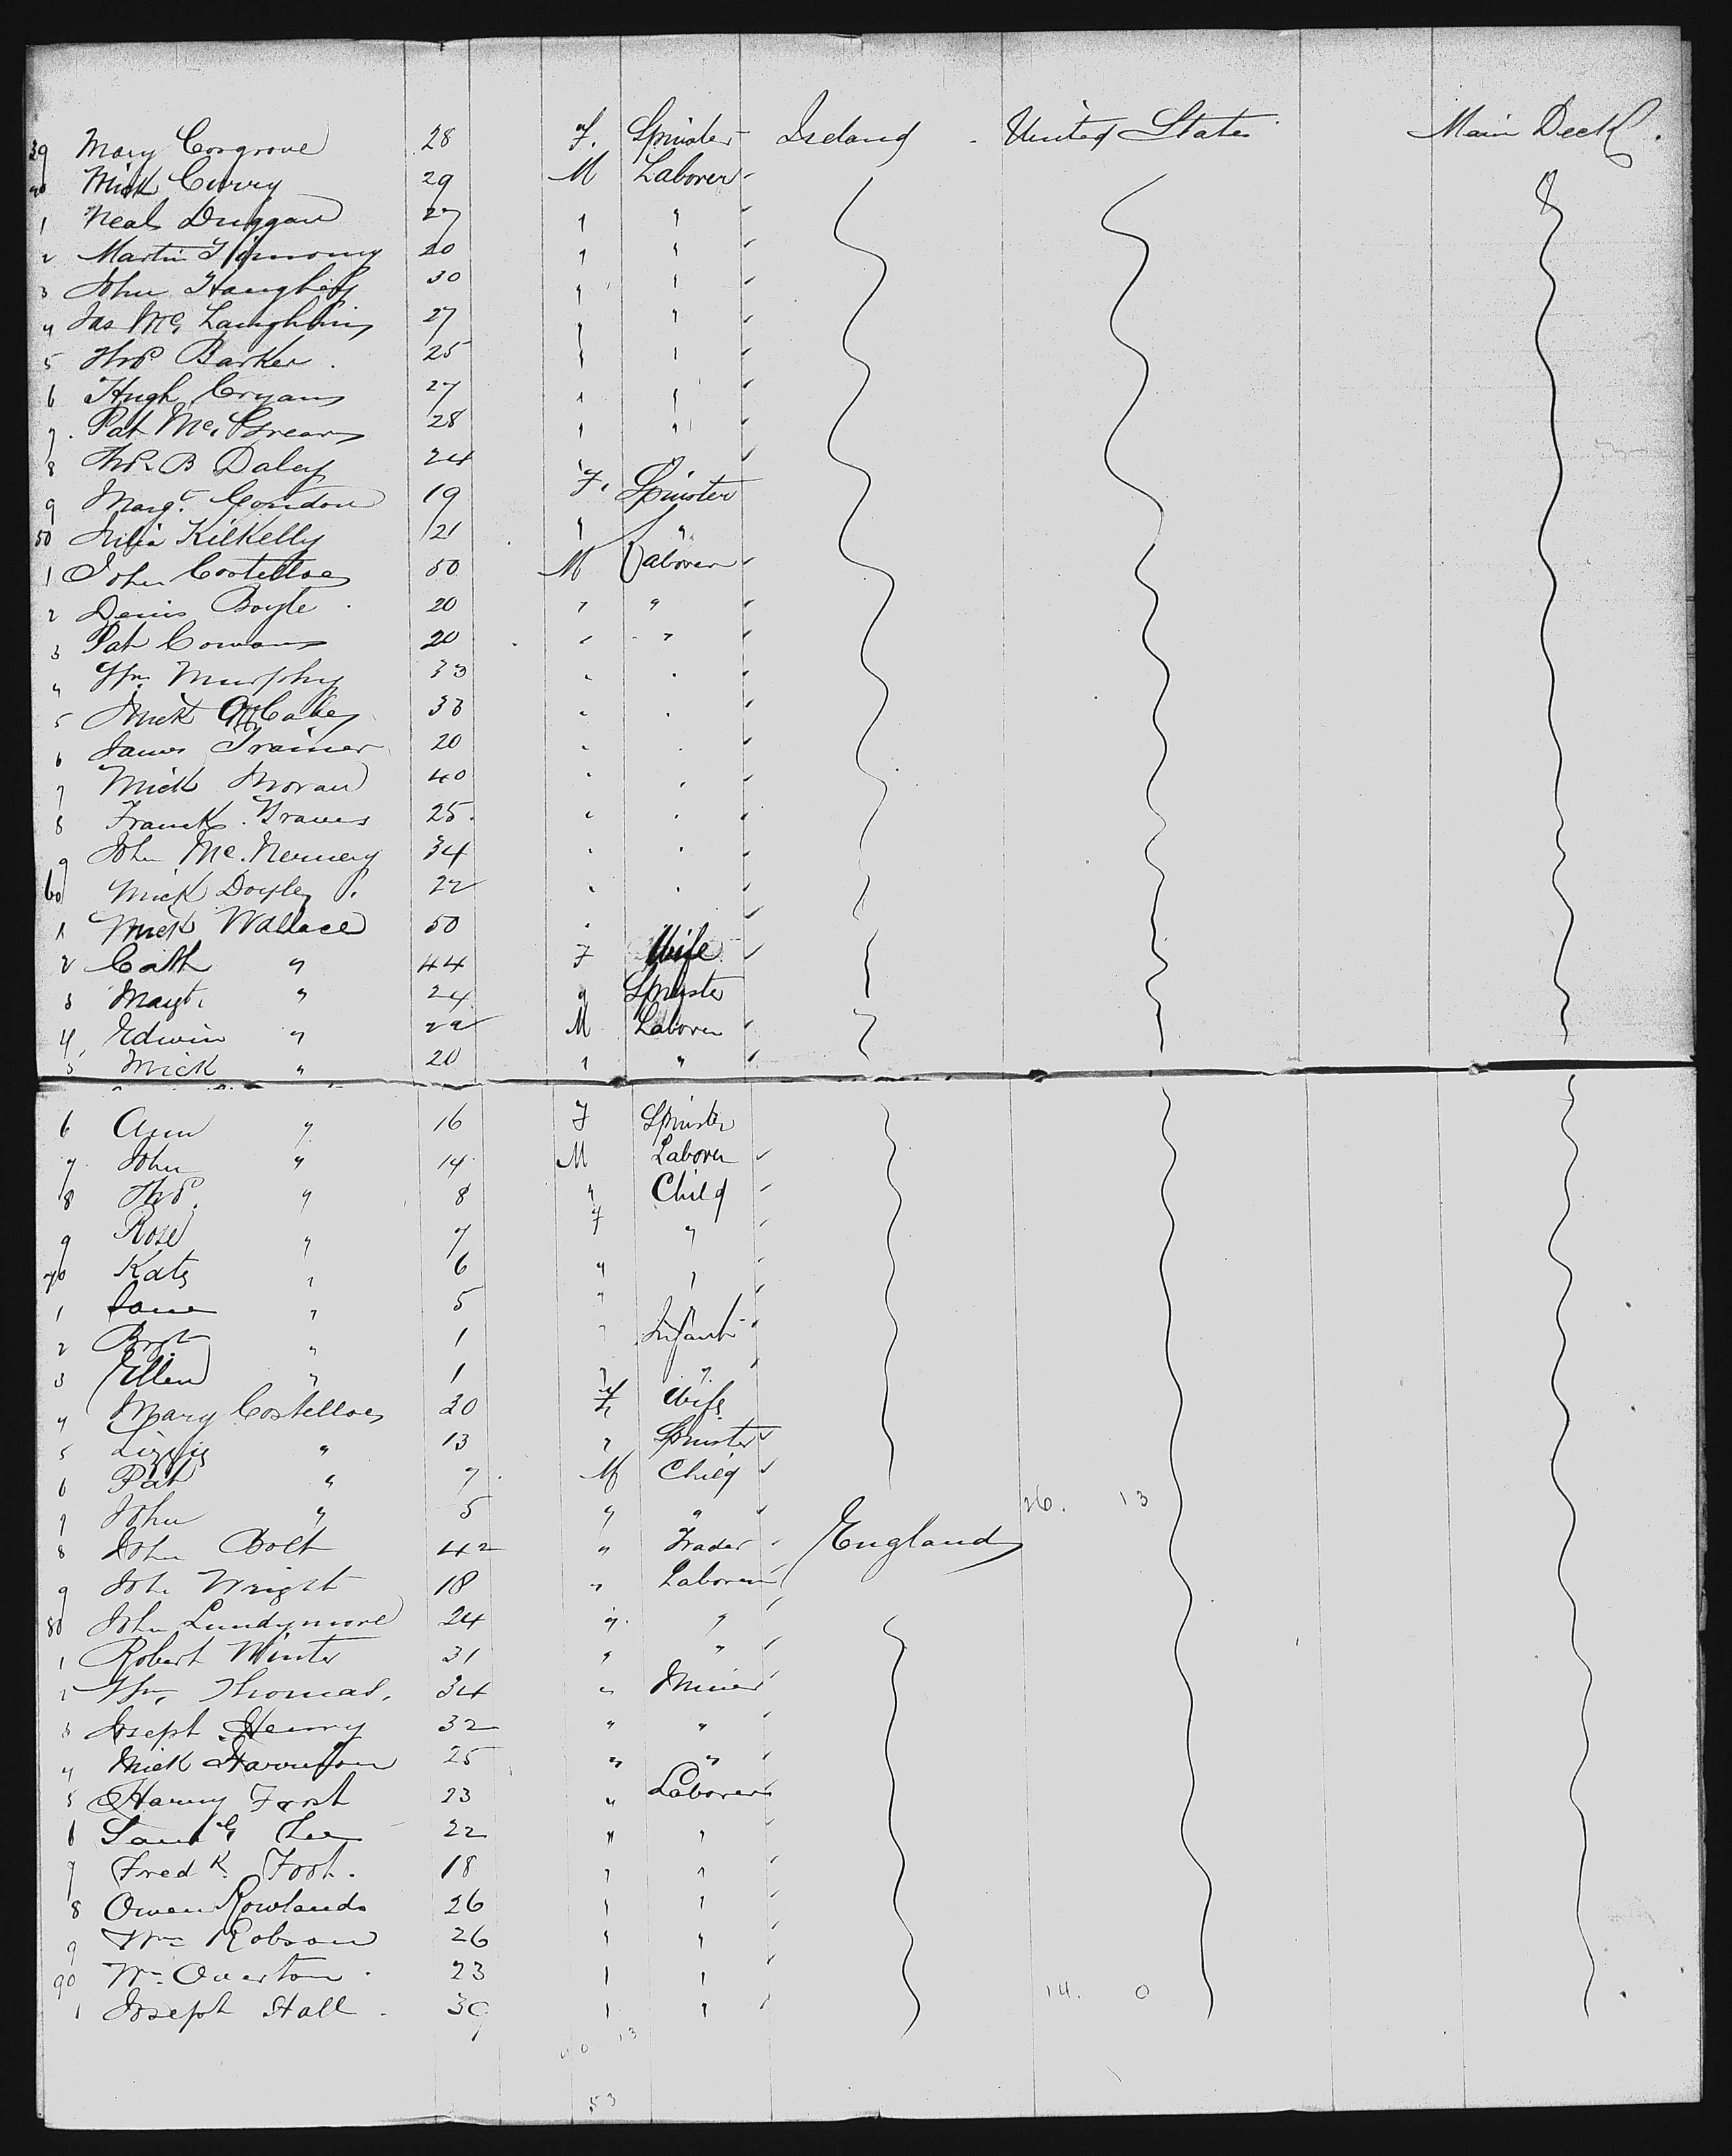 39 Mary Cosgrove 28 F. Spinster Ireland United States Main Deck.
40 Mick Curry 29 M Laborer
1 Neal Duggan 27 " "
2 Martin 20 " "
3 John Haughey 30 " "
4 Jas McLaughlin 27 " "
5 Thos Barker. 25 " "
6 Hugh Cryan 27 " "
7. Pat Mc 28 " "
8 Thos B Daley 24 "
9 Margt. Condon 19 F. Spinster
50 Julia Kilkelly 21 " "
1 John Costelloe 50 M Laborer
2 Denis Boyle 20 " "
3 Pat Cowan 20 " "
4 Wm Murphy 33 " "
5 Mick McCabe 33 " "
6 James Trainer 20 " "
7 Mick Moran 40 " "
8 Frank Graves 25 " "
9 John Mc.Nerney 34 " "
60 Mick Doyle 22 " "
1 Mick Wallace 50 "
2 Cath " 44 F Wife
3 Margt. " 24 " Spinster
4 Edwin " 22 M Laborer
5 Mick " 20 " "
6 Ann " 16 F Spinster
7 John " 14 M Laborer
8 Thos. " 8 " Child
9 Rose " 7 F "
70 Kate " 6 " "
1 Jane " 5 " "
2 Brgt " 1 " Infant
3 Ellen " 1 " "
4 Mary Costelloe 30 F Wife
5 Lizzie " 13 " Spinster
6 Pat " 7 M Child
7 John " 5 " " 26. 13
8 John Bolt 42 " Trader England
9 John Wright 18 " Laborer
80 John Lundymore 24 " "
1 Robert Winter 31 " "
2 Wm Thomas. 34 " Miner
3 Joseph Henry 32 " "
4 Mick Harrison 25 " "
5 Harry Frost 23 " Laborer
6 Saml Lee 22 " "
7 Fredk. Foot. 18 " "
8 Owen Rowlands 26 " "
9 Wm Robson 26 " "
90 Wm Overton 23 " " 14. 0
1 Joseph Hall 30 " "
13
53